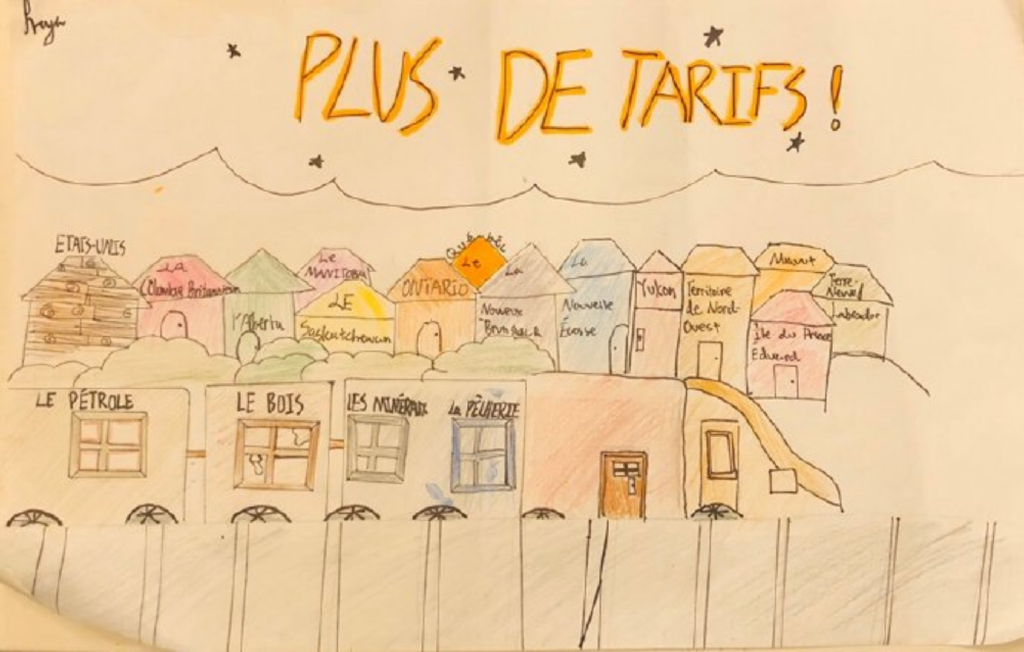 PLUS DE TARIFS!
ETATS-UNIS
LA
Colombie Britannique
l'Alberta
Le
MANITOBA
LE
Saskatchewan
ONTARIO
Québec
Le
La
Nouveau
Brunswick
La
Nouvelle
Écosse
Yukon
Territoire
de Nord-
Ouest
Île du Prince
Edward
Terre-
Neuve
Labrador
LE PÉTROLE
LE BOIS
LES MINÉRAUX
La PÊCHERIE